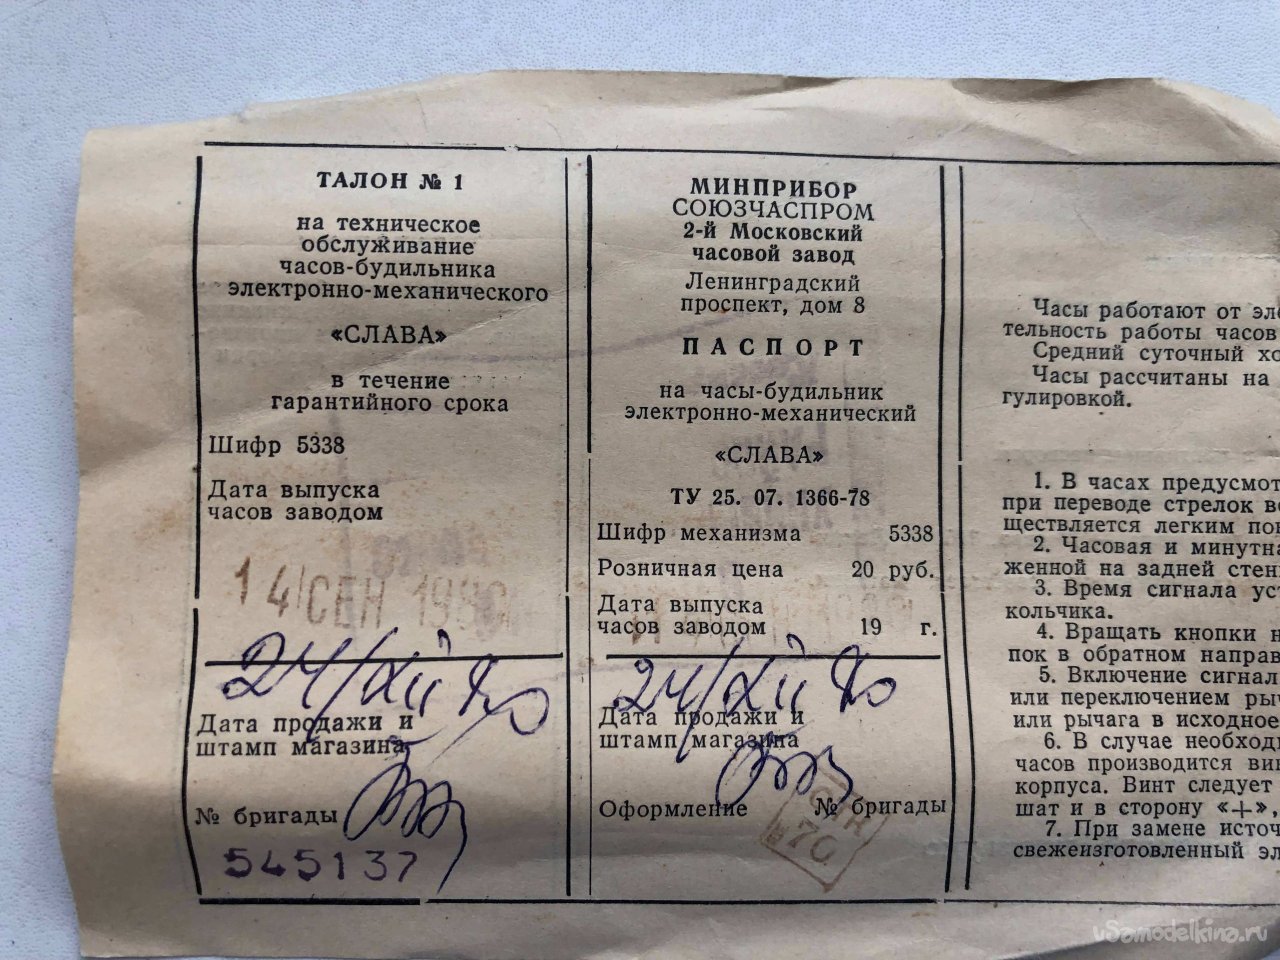 ТАЛОН № 1
на техническое
обслуживание
часов-будильника
электронно-механического
«СЛАВА»
в течение
гарантийного срока
Шифр 5338
Дата выпуска
часов заводом
14 СЕН 1980
24/XII 80
Дата продажи и
штамп магазина
№ бригады
545137
МИНПРИБОР
СОЮЗЧАСПРОМ
2-й Московский
часовой завод
Ленинградский
проспект, дом 8
ПАСПОРТ
на часы-будильник
электронно-механический
«СЛАВА»
ТУ 25. 07. 1366-78
Шифр механизма 5338
Розничная цена 20 руб.
Дата выпуска
часов заводом 19 г.
24/XII 80
Дата продажи и
штамп магазина
Оформление № бригады
70
Часы работают от эле
тельность работы часов
Средний суточный хо
Часы рассчитаны на
гулировкой.
1. В часах предусмот
при переводе стрелок во
ществляется легким пов
2. Часовая и минутна
женной на задней стен
3. Время сигнала уст
кольчика.
4. Вращать кнопки н
пок в обратном направ
5. Включение сигнал
или переключением рыч
или рычага в исходное
6. В случае необходи
часов производится вин
корпуса. Винт следует
шат и в сторону «+»,
7. При замене источ
свежеизготовленный эл
vSamodelkina.ru